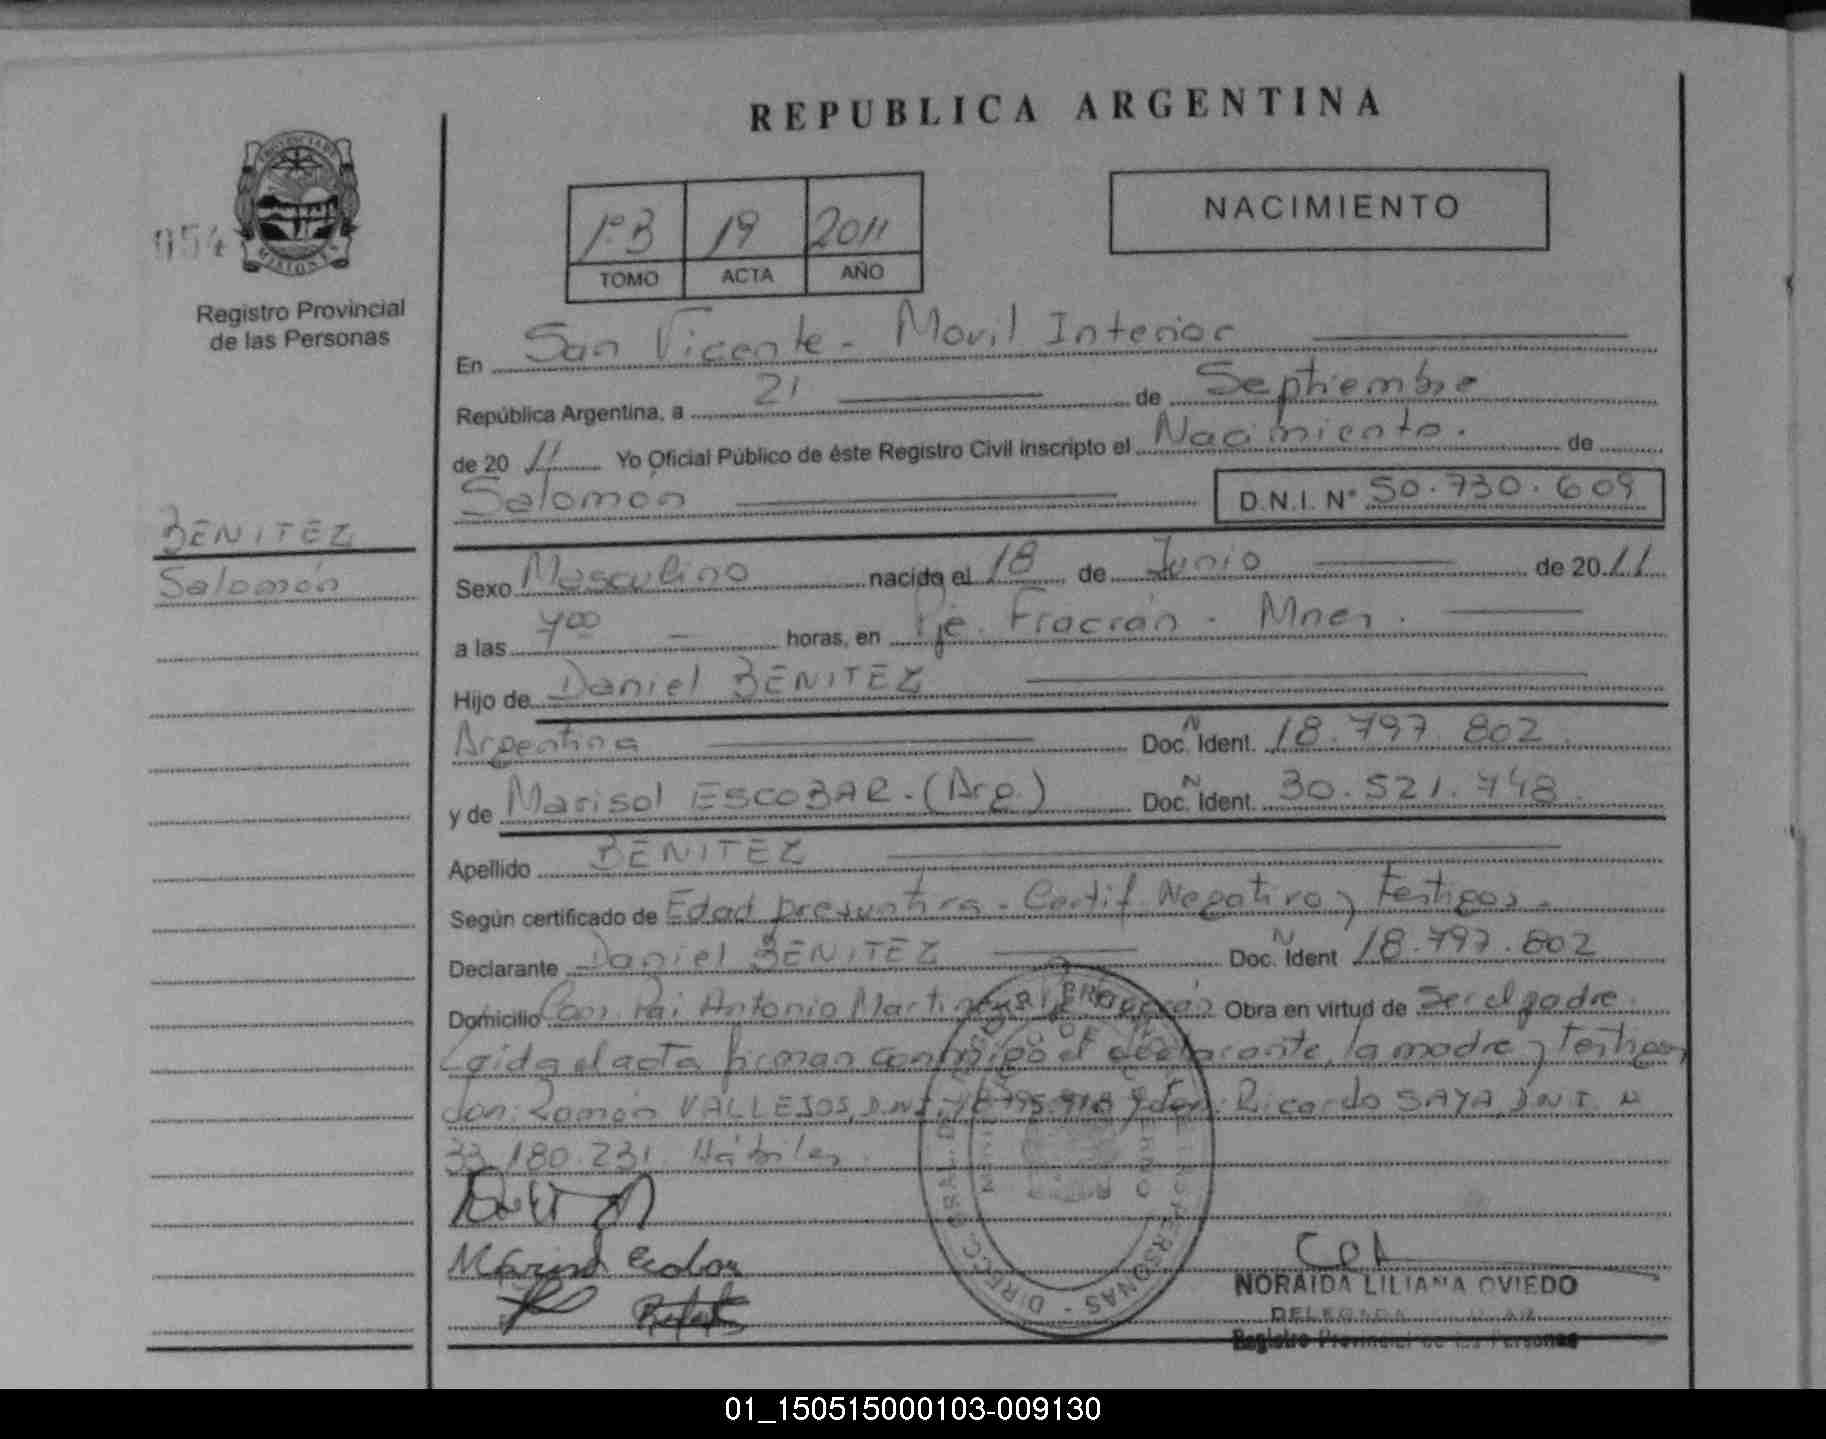 REPUBLICA ARGENTINA
PROVINCIA DE
MISIONES
054
Registro Provincial
de las Personas
1º B 19 2011
TOMO ACTA AÑO
NACIMIENTO
En San Vicente - Movil Interior
República Argentina, a 21 de Septiembre
de 2011 Yo Oficial Público de éste Registro Civil inscripto el Nacimiento. de
Salomón D.N.I. Nº 50.730.609
BENITEZ
Salomón
Sexo Masculino nacido el 18 de Junio de 2011
a las 7 00 horas, en Pje. Fracrán - Mnes.
Hijo de Daniel BENITEZ
Argentina Doc. N Ident. 18.797.802
y de Marisol ESCOBAR - (Arg.) Doc. N Ident. 30.521.748
Apellido BENITEZ
Según certificado de Edad presuntiva - Certif. Negativo y Testigos.
Declarante Daniel BENITEZ Doc. N Ident 18.797.802
Domicilio Com. Pai Antonio Martinez Fracrán Obra en virtud de Ser el padre.
Leida el acta firman conmigo el declarante, la madre y testigos
don: Ramón VALLEJOS, D.N.I. y don: Ricardo SAYA D.N.I. N
33.180.231. Hábiles.
Marisol Escobar
NORAIDA LILIANA OVIEDO
DELEGADA
Registro Provincial de las Personas
01_150515000103-009130